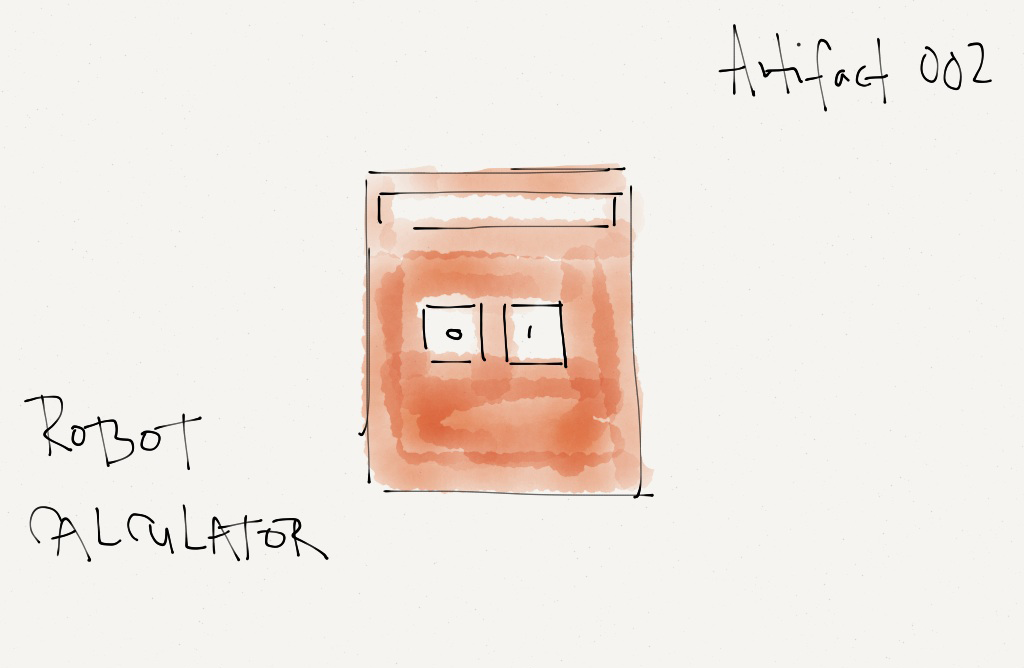 Artifact 002
0 1
ROBOT
CALCULATOR